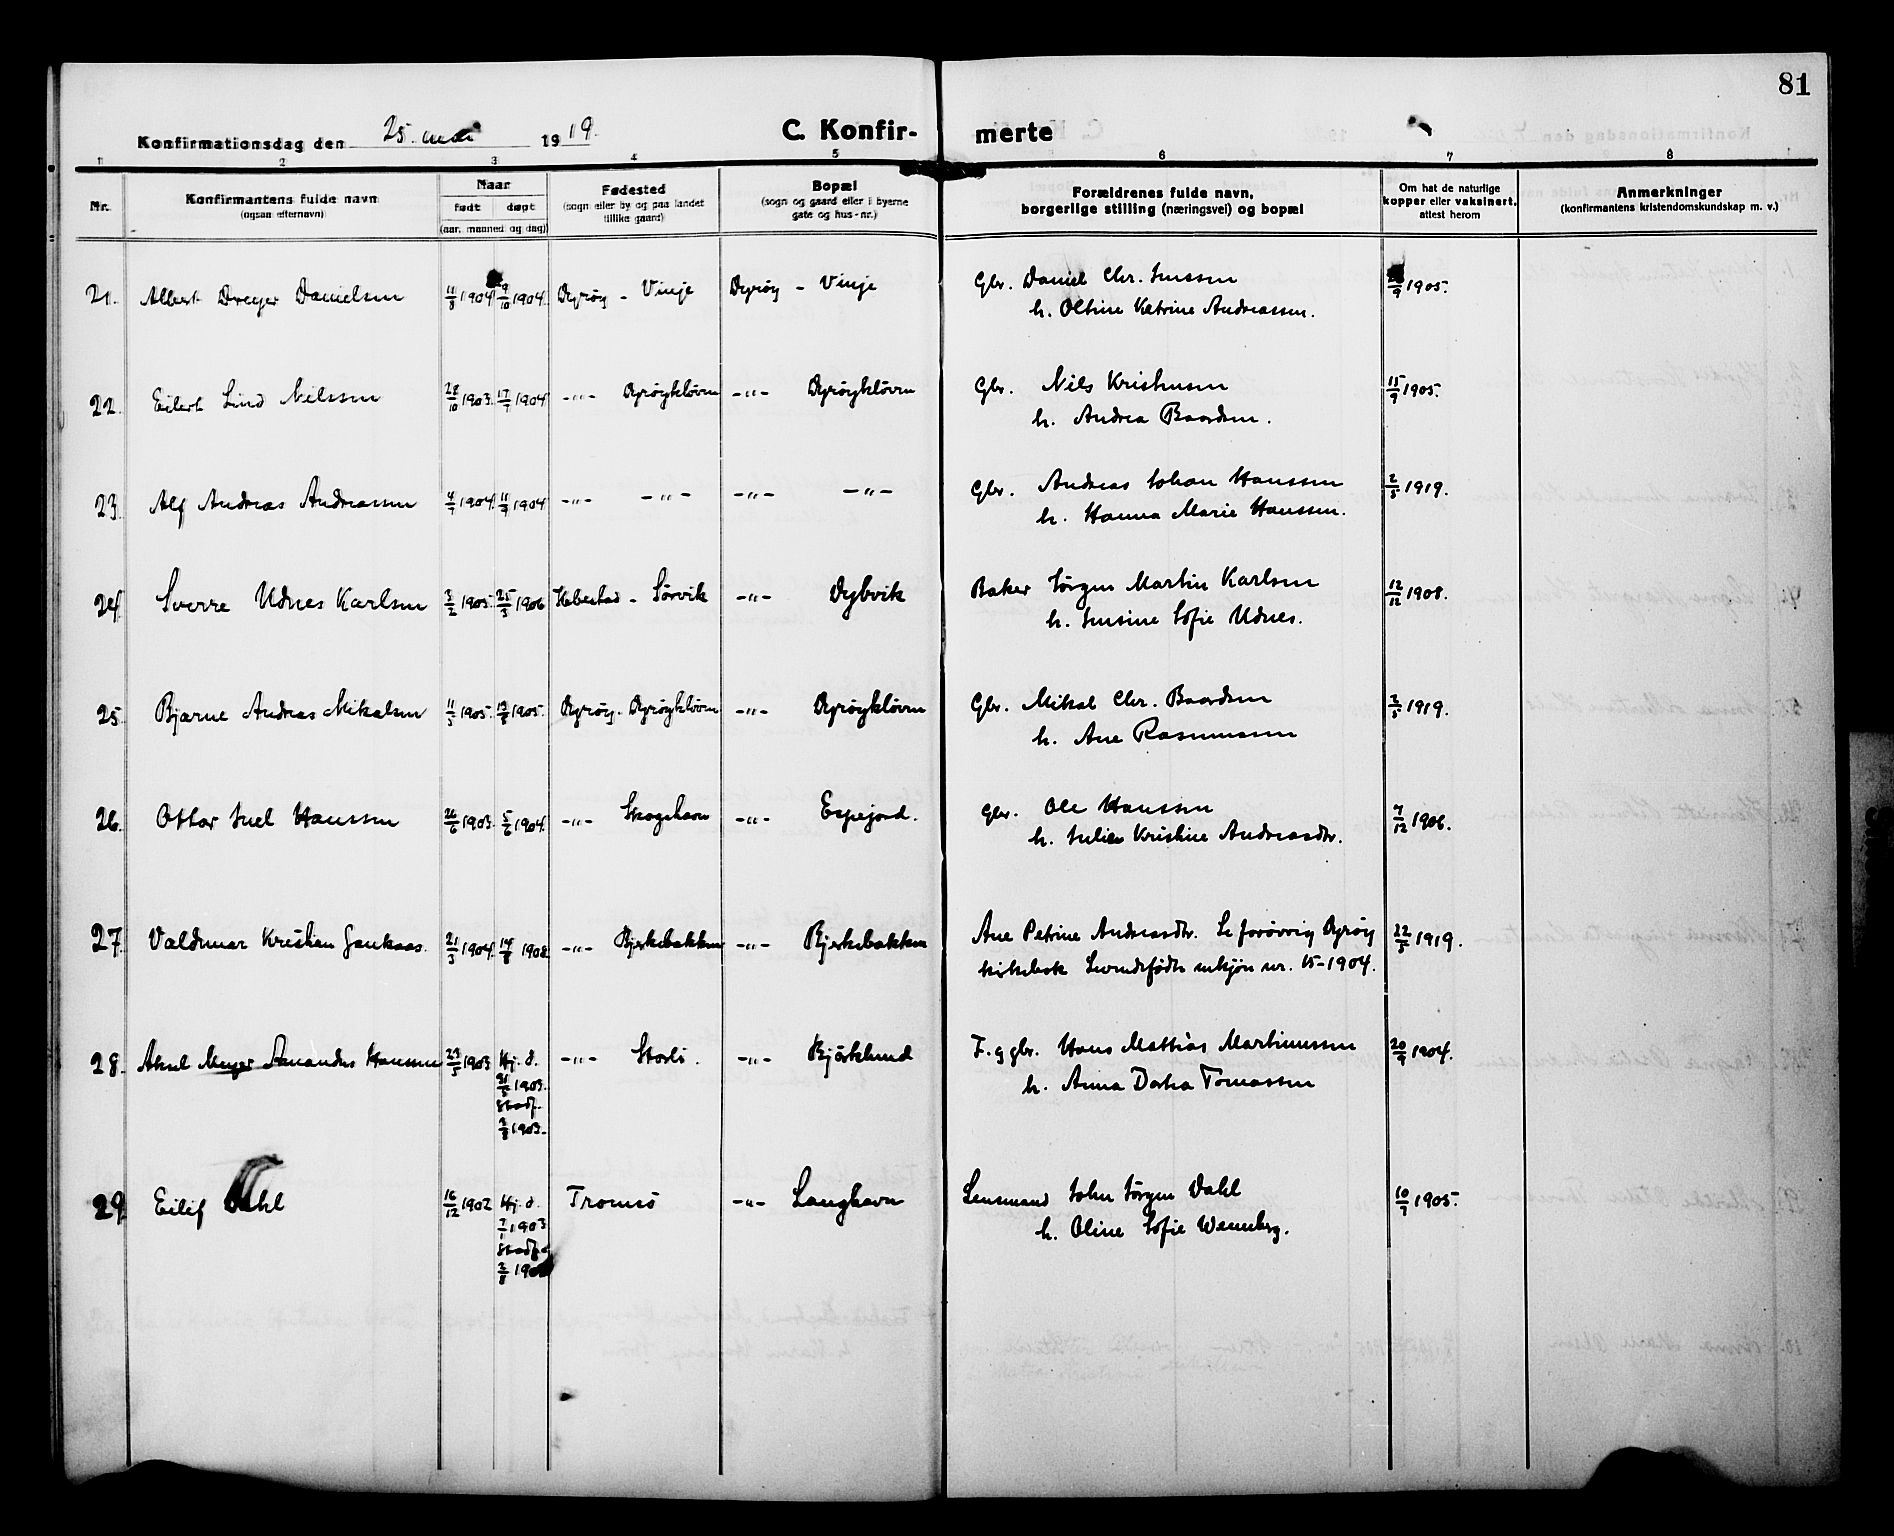 81
Konfirmationsdag den 25. mai 1919.
C. Konfirmerte
1 2 3 4 5 6 7 8
Nr.
Konfirmantens fulde navn
(ogsaa efternavn)
Naar
født døpt
(aar, maaned og dag)
Fødested
(sogn eller by og paa landet
tillike gaard)
Bopæl
(sogn og gaard eller i byerne
gate og hus-nr.)
Forældrenes fulde navn,
borgerlige stilling (næringsvei) og bopæl
Om hat de naturlige
kopper eller vaksinert,
attest herom
Anmerkninger
(konfirmantens kristendomskundskap m. v.)
21. Albert Dreyer Danielsen 11/8 1904. 9/10 1904. Dyrøy - Vinje Dyrøy - Vinje Gbr. Daniel Chr. Jenssen 9 1905.
h. Oltine Katrine Andreassen.
22. Eilert Lind Nilssen 28/10 1903. 17/7 1904 -"- Dyrøykløven -"- Dyrøykløven Gbr. Nils Kristensen 15/9 1905.
h. Andrea Baardsen.
23. Alf Andreas Andreassen 4/7 1904 11/9 1904 -"- -"- -"- -"- Gbr. Andreas Johan Hanssen 2/5 1919.
h. Hanna Marie Hanssen.
24. Sverre Udnes Karlsen 3/2 1905. 25/3 1906 Ibbestad - Sørvik -"- Dybvik Baker Jørgen Martin Karlsen 12/12 1908.
h. Jensine Sofie Udnes.
25. Bjarne Andreas Mikalsen 11/5 1905. 13/8 1905. Dyrøy - Dyrøykløven -"- Dyrøykløven Gbr. Mikal Chr. Baardsen 2/5 1919.
h. Ane Rasmussen
26. Ottar Juel Hanssen 26/6 1903. 5/6 1904. -"- Skogshavn -"- Espejord. Gbr. Ole Hanssen 7/12 1906.
h. Julie Kristine Andreasdtr.
27. Valdemar Kristian Gaukaas. 21/3 1904. 14/8 1908 -"- Bjerkebakken -"- Bjerkebakken Ane Petrine Andreasdtr. Se forøvrig Dyrøy 22/5 1919.
kirkebok levendefødte mkjøn nr. 15-1904.
28. Aksel Meyer Amandus Hanssen 23/5 1903 Hj. d. -"- Storli. -"- Bjørklund F. og gbr. Hans Mattias Martinussen 20/9 1904.
31/5 1903. h. Anna Dorta Tomassen
Stadf.
2/8 1903.
29. Eilif Dahl 16/12 1902 Hj. d. Tromsø -"- Langhavn Lensmand John Jørgen Dahl 10/9 1905.
7/1 1903 h. Oline Sofie Wenneberg.
Stadf.
2/8